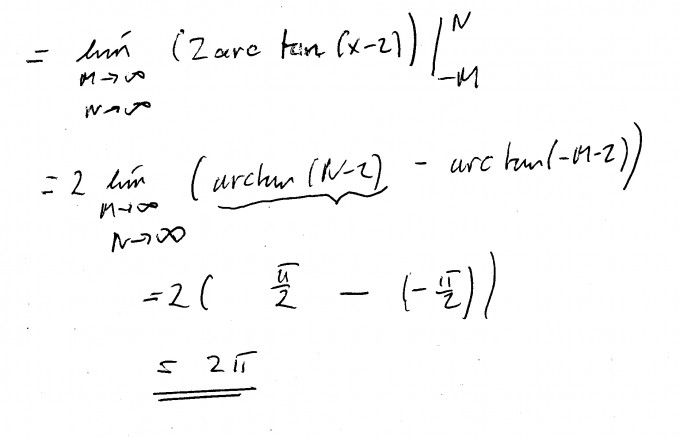 = lim (2 arc tan (x-2)) |^N_-M
M→∞
N→∞
= 2 lim (arctan (N-2) - arc tan(-M-2))
M→∞
N→∞
= 2( π/2 - (-π/2))
= 2π